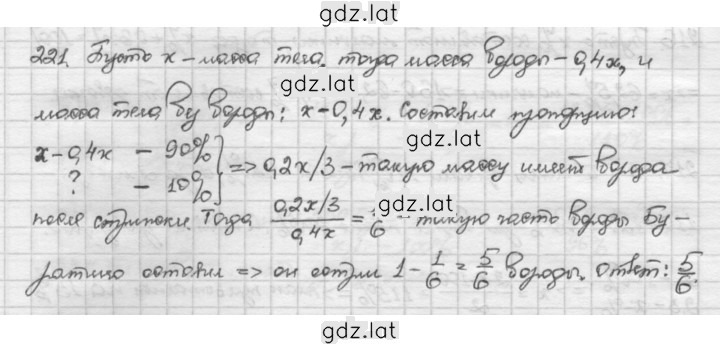 gdz.lat
221. Пусть x - масса тела. тогда масса бороды - 0,4x, и
gdz.lat
масса тела без бороды: x-0,4x. Составим пропорцию:
x-0,4x - 90%
? - 10% => 0,2x/3 - такую массу имеет борода
gdz.lat
после стрижки. Тогда (0,2x/3)/(0,4x) = 1/6 - такую часть бороды Бу-
gdz.lat
ратино оставил => он состриг 1 - 1/6 = 5/6 бороды. Ответ: 5/6.
gdz.lat